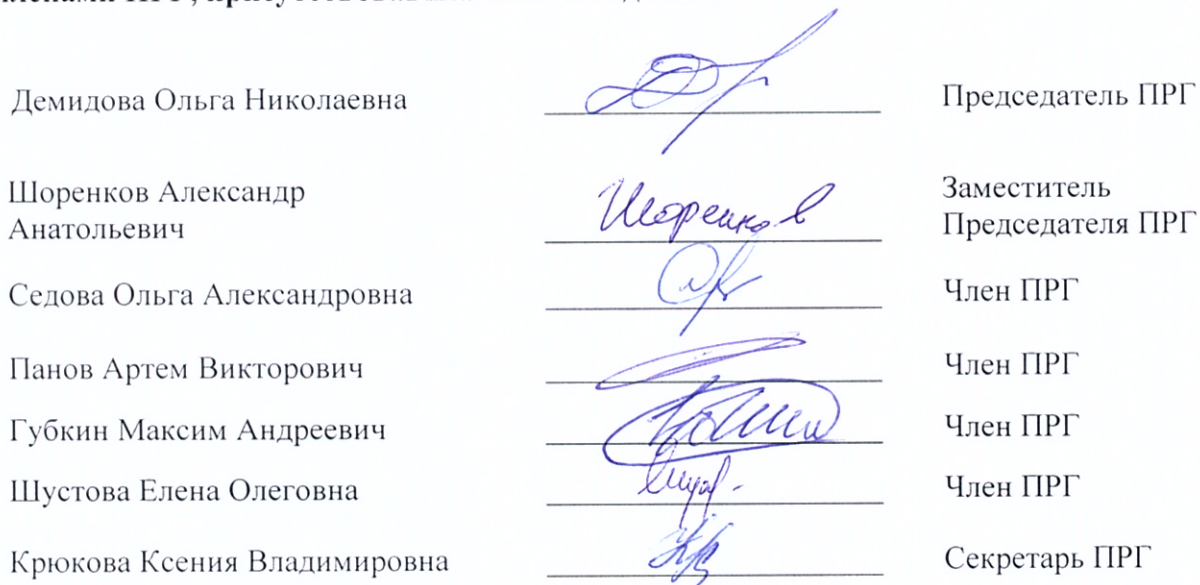 Демидова Ольга Николаевна Председатель ПРГ
Шоренков Александр Заместитель
Анатольевич Шоренков Председателя ПРГ
Седова Ольга Александровна Член ПРГ
Панов Артем Викторович Член ПРГ
Губкин Максим Андреевич Член ПРГ
Шустова Елена Олеговна Член ПРГ
Крюкова Ксения Владимировна Секретарь ПРГ